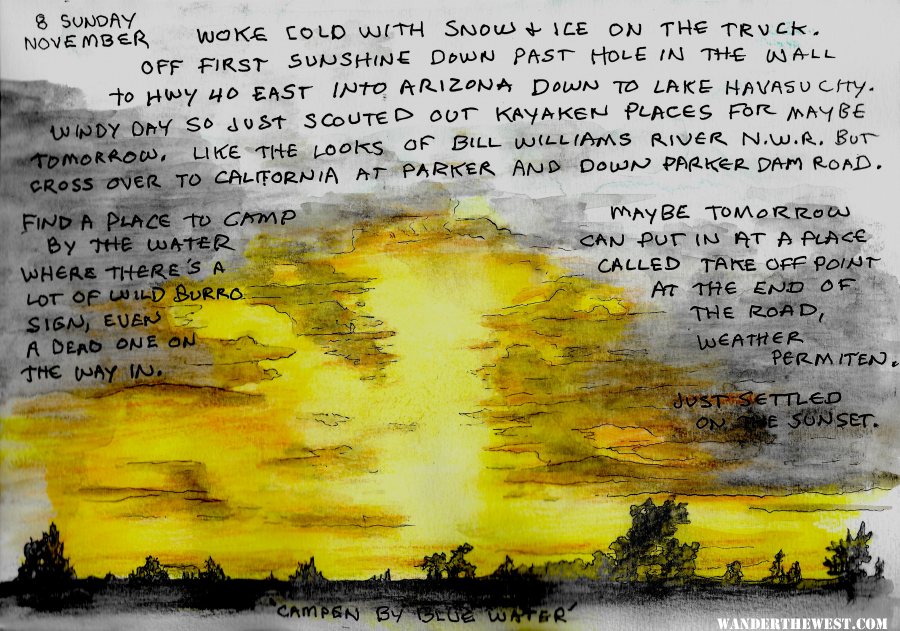 8 SUNDAY
NOVEMBER
WOKE COLD WITH SNOW & ICE ON THE TRUCK.
OFF FIRST SUNSHINE DOWN PAST HOLE IN THE WALL
TO HWY 40 EAST INTO ARIZONA DOWN TO LAKE HAVASU CITY.
WINDY DAY SO JUST SCOUTED OUT KAYAKEN PLACES FOR MAYBE
TOMORROW. LIKE THE LOOKS OF BILL WILLIAMS RIVER N.W.R. BUT
CROSS OVER TO CALIFORNIA AT PARKER AND DOWN PARKER DAM ROAD.
FIND A PLACE TO CAMP
BY THE WATER
WHERE THERE'S A
LOT OF WILD BURRO
SIGN, EVEN
A DEAD ONE ON
THE WAY IN.
MAYBE TOMORROW
CAN PUT IN AT A PLACE
CALLED TAKE OFF POINT
AT THE END OF
THE ROAD,
WEATHER
PERMITEN.
JUST SETTLED
ON THE SUNSET.
'CAMPEN BY BLUE WATER'
WANDERTHEWEST.COM